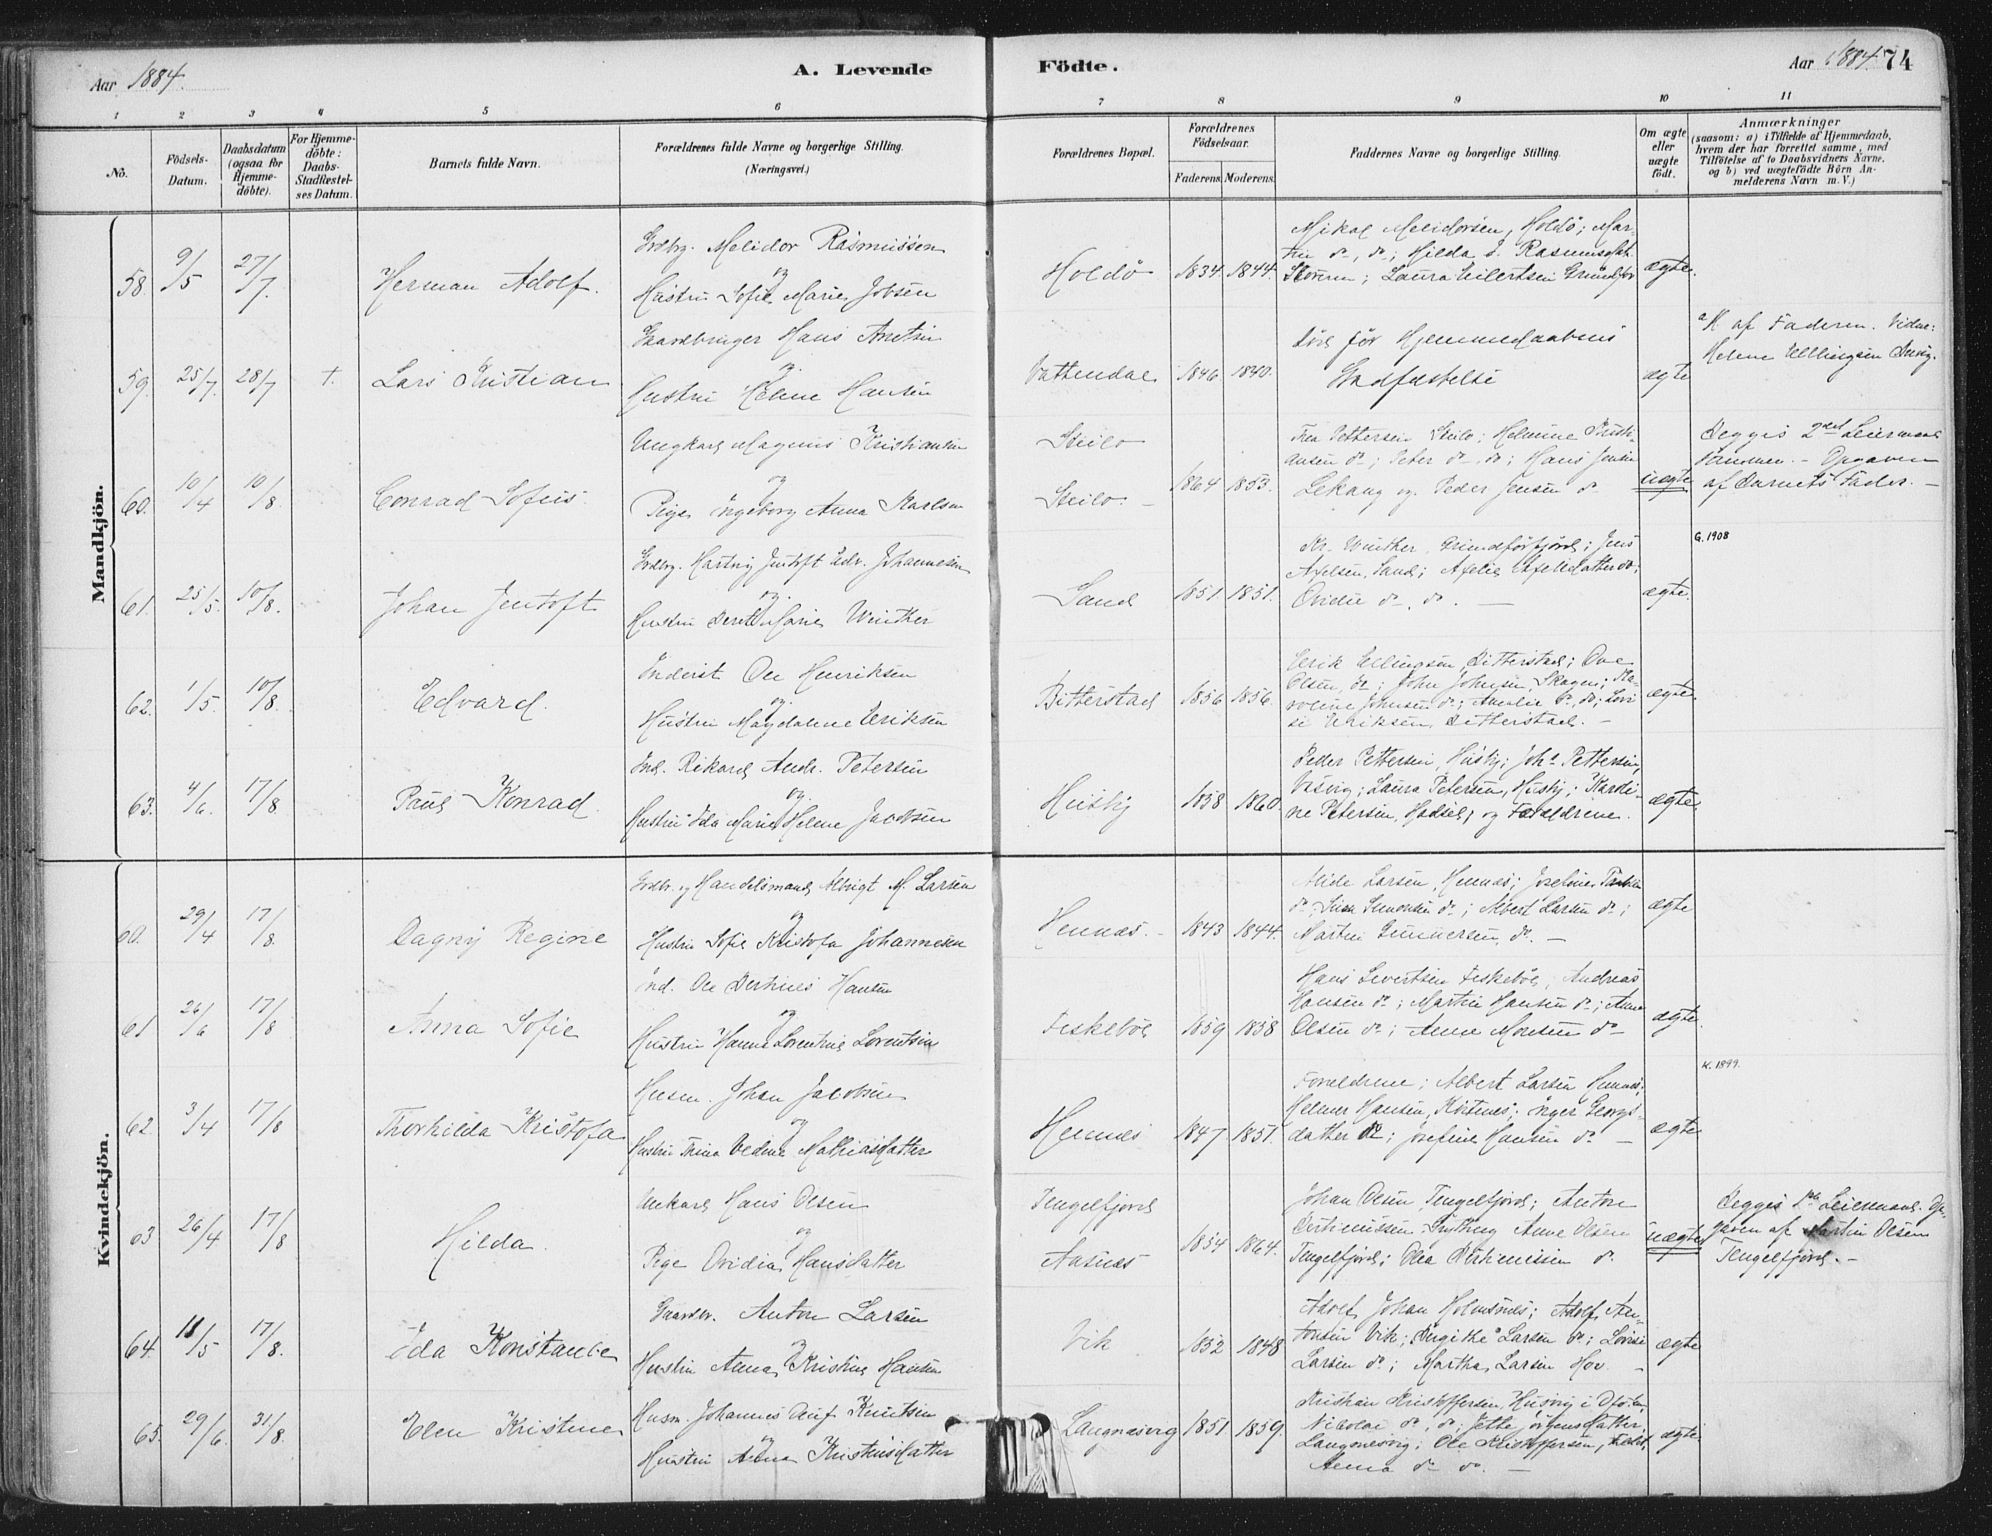 Aar 1884.
A. Levende
Födte.
Aar 1884 74
1 2 3 4 5 6 7 8 9 10 11
No.
Födsels-
Datum.
Daabsdatum
(ogsaa for
Hjemme-
döbte).
For Hjemme-
döbte:
Daabs-
Stadfæstel-
ses Datum.
Barnets fulde Navn.
Forældrenes fulde Navne og borgerlige Stilling.
(Næringsvei.)
Forældrenes Bopæl.
Forældrenes
Födselsaar.
Faderens. Moderens.
Faddernes Navne og borgerlige Stilling.
Om ægte
eller
uægte
födt.
Anmærkninger
(saasom: a) i Tilfælde af Hjemmedaab,
hvem der har forrettet samme, med
Tilföielse af to Daabsvidners Navne.
og b) ved uægtefödte Börn An-
melderens Navn m. V.)
Mandkjön.
58. 9/5 27/7. Herman Adolf.
Grdbg. Melidor Rasmussen
og
Hustru Sofie Marie Jobsen
Holdö 1834 1844.
Mikal Melidorsen, Holdö; Mar-
tin do, do; Hilda J. Rasmusdat.
; Laura Eilertsen
ægte.
59. 25/7. 28/7 +. Lars Kristian
Gaardbruger Hans
og
Hustru Helene Hansen
Vattendal 1846 1840.
Död för Hjemmedaabens
Stadfæstelse
ægte
a K af Faderen. Vidne:
Helene Ellingsen
60. 10/4 10/8. Conrad Sofus
Ungkarl Magnus Kristiansen
og
Pige Ingeborg Anna Karlsen
Steilo
Steilo. 1864 1853.
Pettersen Steilo; Helmine Kristi-
ansen do; Peter do, do; Hans Jensen
Lekang og Peder Jensen do
uægte
Begges 2det Leiermaal
af Barnets Fader.
61. 25/5. 10/8. Johan Jentoft
Grdbg. Hartvig Jentoft Edv. Johannesen
og
Hustru Marie Winther
Sand 1851 1851.
Kr. Winther, Grundförfjord; Jens
Axelsen, Sand;
Ovidie do, do.
ægte.
G. 1908
62. 1/5. 10/8. Edvard.
Inderst Ole Henriksen
og
Hustru Magdalene Eriksen
Bitterstad 1856 1856.
Erik Ellingsen Bitterstad; Ove
Olsen, do; John Johnsen, Skagen; Ka-
roline Johnsen do; Amalie do, do; Lovi-
se Eriksen, Bitterstad.
ægte.
63. 4/6. 17/8 Paul Konrad.
Ind. Rikard Andr. Petersen
og
Hustru Ida Marie Helene Jacobsen
Husby 1838 1860.
Peder Pettersen, Husby; Johs Pettersen,
; Laura Petersen, Husby; Karoli-
ne Petersen, Hadsel; og Forældrene.
ægte.
Kvindekjön.
60. 29/4 17/8. Dagny Regine
Grdbr. og Handelsmand Albrigt M. Larsen
og
Hustru Sofie Kristofa Johannesen
Hennæs. 1843 1844.
Larsen, Hennæs; Josefine
do; Simonsen do; Albert Larsen do;
Martin Gunnersen, do.
ægte
61 26/6 17/8 Anna Sofie
Ind. Ole Hansen
og
Hustru Hanna Lorentine Lorentsen
Fiskebøl 1859 1858
Hans Sivertsen Fiskebøl, Andreas
Hansen do; Martin Hansen do; Anne
Olsen do; Anne Monsen do
ægte
62. 3/4 17/8 Thorhilda Kristofa
Husm. Johan Jacobsen
og
Hustru Trina Mathiasdatter
Hennes 1847 1851.
Forældrene; Albert Larsen Hennes;
Helmer Hansen, ; Inger Georgs-
datter do; Josefine Hansen do
ægte
K. 1899.
63 26/4 17/8 Hilda.
Unkarl Hans Olsen
og
Pige Ovidia Hansdatter
Tengelfjord
Aasnæs 1854 1864.
Johan Olsen Tengelfjord; Anton
Anne Olsen
Tengelfjord; Olea do
uægte
Begges 1ste Leiermaal. Op-
gaven af Martin Olsen
Tengelfjord.
64. 11/5 17/8. Ida Konstanse
Gaardbr. Anton Larsen
og
Hustru Anna Kristine Hansen
Vik 1852 1848
Adolf Johan ; Adolf An-
tonsen Vik; Birgithe Larsen do; Lovise
Larsen do; Martha Larsen Hov.
ægte
65. 29/6 31/8. Elen Kristine
Husm. Johannes Knutsen
og
Hustru Anna Kristensdatter
Langnæsvig 1851 1859.
Kristian Kristoffersen, Husvig i Ofoten,
Nikolai do, do; Jette datter
Langnesvig; Ole Kristoffersen,
Anna do do.
ægte.